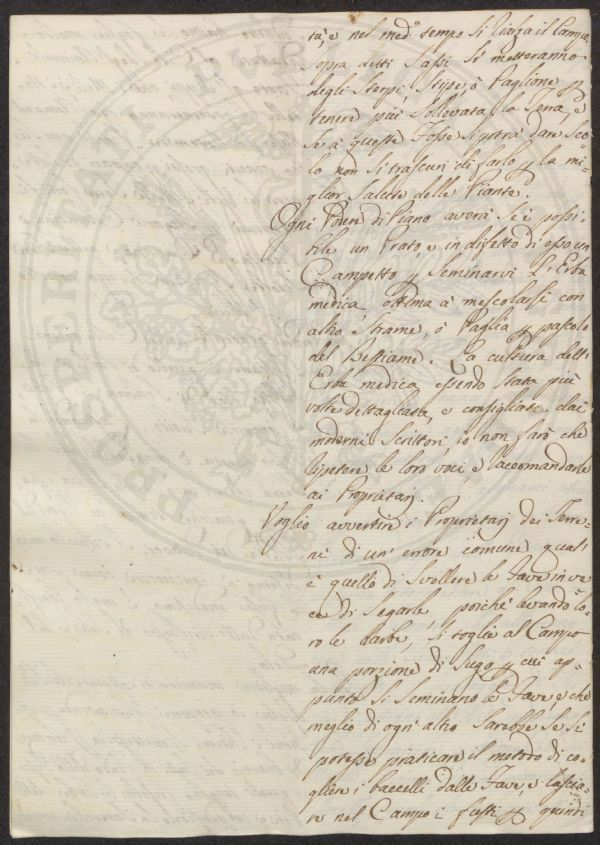 tà, e nel med.º tempo si rialza il Campo,
sopra detti Sassi si metteranno
degli Sterpi, Stipe, ò Paglione p
tenere più sollevata la Terra, e
se à queste Fosse si potrà dare sco-
lo non si trascuri di farlo p la mi-
glior Salute delle Piante.
Ogni Podere di Piano averà se è possi-
bile un Prato, e in difetto di esso un
Campetto p Seminarvi L'Erba
medica, ottima à mescolarsi con
altro Strame, ò Paglia p pascolo
del Bestiame. La cultura dell'
Erba medica, essendo stata più
volte dettagliata, e consigliata dai
moderni Scrittori, io non farò che
ripetere le loro voci, e raccomandarle
ai Proprietarj.
Voglio avvertire i Proprietarj dei Terre-
ni di un' errore comune, qual'
è quello di Svellere le Fave in ve-
ce di Segarle, poichè levando lo-
ro le barbe, si toglie al Campo
una porzione di Sugo p cui ap-
punto si Seminano le Fave, e che
meglio di ogn' altro Sarebbe se si
potesse praticare il metodo di co-
gliere i baccelli dalle Fave, e lascia-
re nel Campo i fusti p quindi
PROSPERITATI